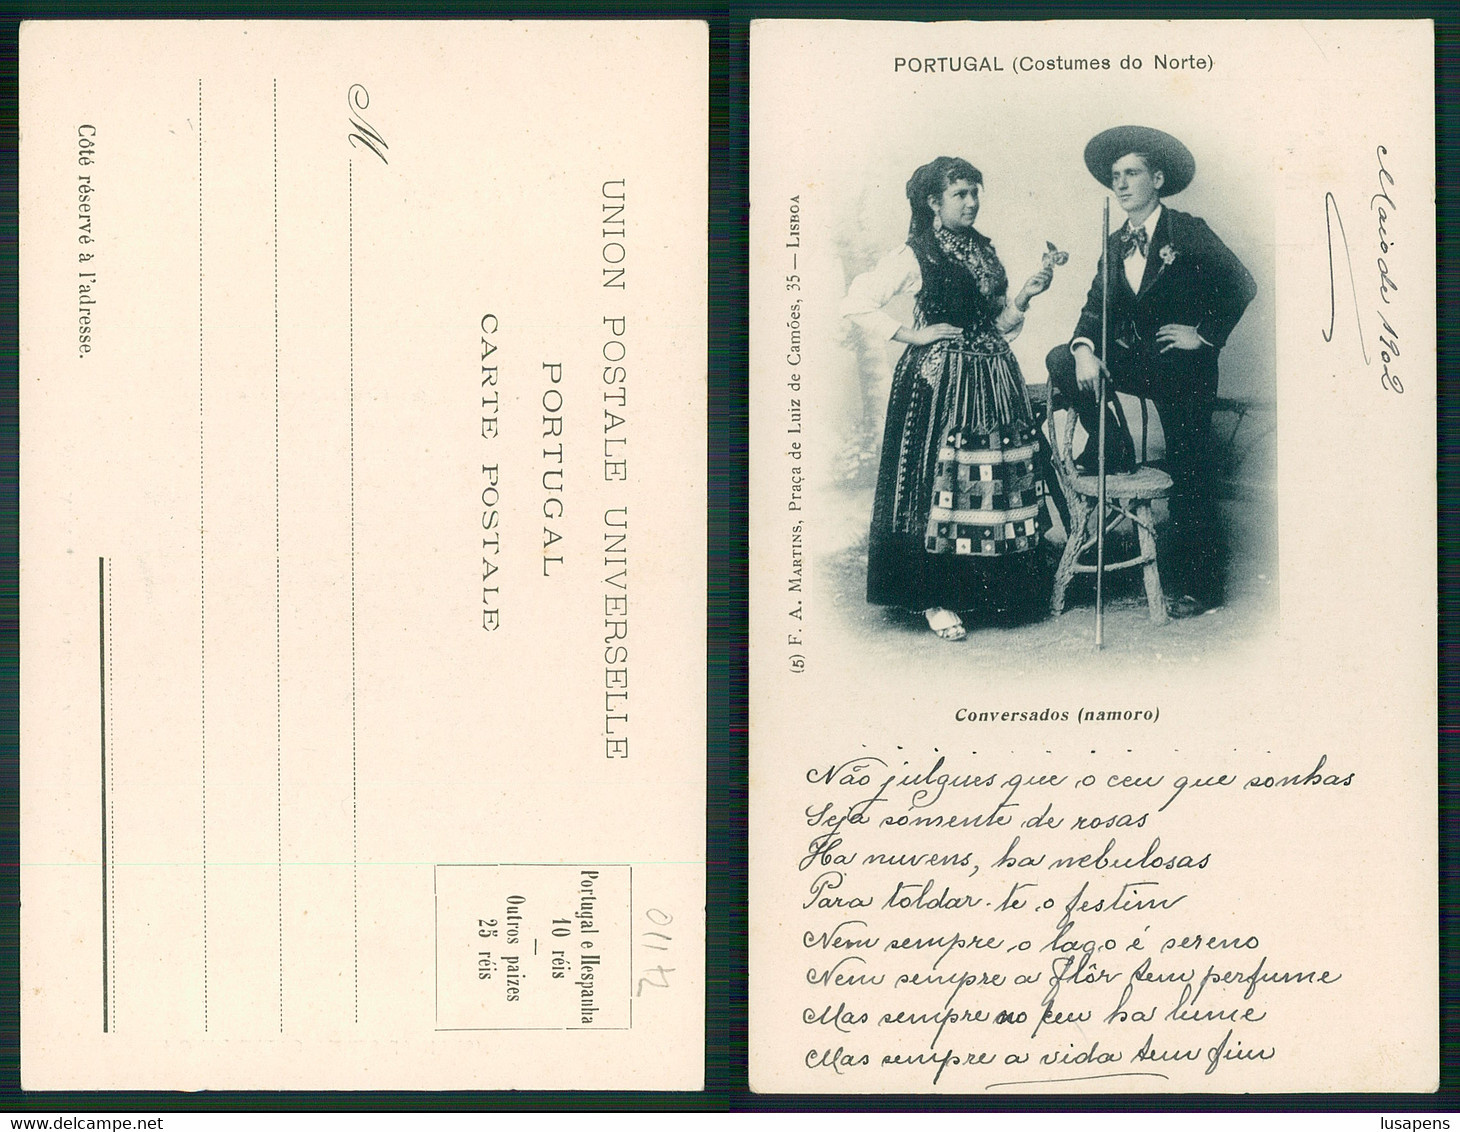 UNION POSTALE UNIVERSELLE
PORTUGAL
CARTE POSTALE
M
Côté réservé à l'adresse.
Portugal e Hespanha
10 réis
Outros paizes
25 réis
PORTUGAL (Costumes do Norte)
(5) F. A. MARTINS, Praça de Luiz de Camões, 35 — LISBOA
Maio de 1902
Conversados (namoro)
Não julgues que o ceu que sonhas
Seja sómente de rosas
Ha nuvens, ha nebulosas
Para toldar-te o festim
Nem sempre o lago é sereno
Nem sempre a flôr tem perfume
Mas sempre no ceu ha lume
Mas sempre a vida tem fim
lusapens